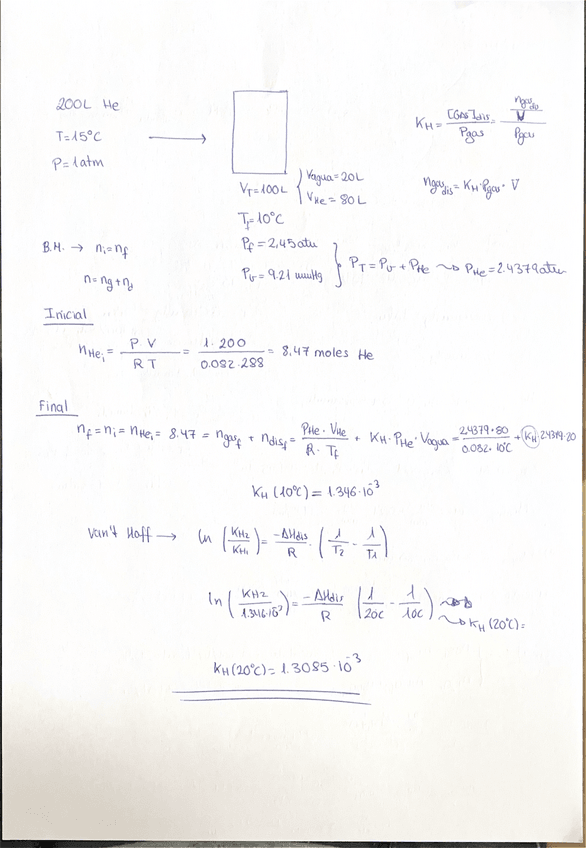 200L He
T=15°C
P=1atm
V_T=100L { Vagua=20L
V_He=80L
T_f=10°C
K_H = [GAS]dis / Pgas = (ngas dis / V) / Pgas
ngas dis = K_H · Pgas · V
B.M. → n_i=n_f
n=n_g+n_d
P_f=2,45atm
P_v=9.21 mmHg } P_T=P_v+P_He ⇝ P_He=2.4379atm
Inicial
n_He i = P V / R T = 1·200 / 0.082·288 = 8.47 moles He
Final
n_f=n_i=n_He i=8.47=n_gas f + n_dis f = P_He·V_He / R·T_f + K_H·P_He·Vagua = 2,4379·80 / 0.082·10°C + K_H·2.4379·20
K_H (10°C)=1.346·10^-3
Van't Hoff → ln (K_H2 / K_H1) = -ΔHdis / R · (1/T2 - 1/T1)
ln (K_H2 / 1.346·10^-3) = -ΔHdis / R (1/20C - 1/10C)
⇝ K_H (20°C)=
K_H (20°C)=1.3085·10^-3